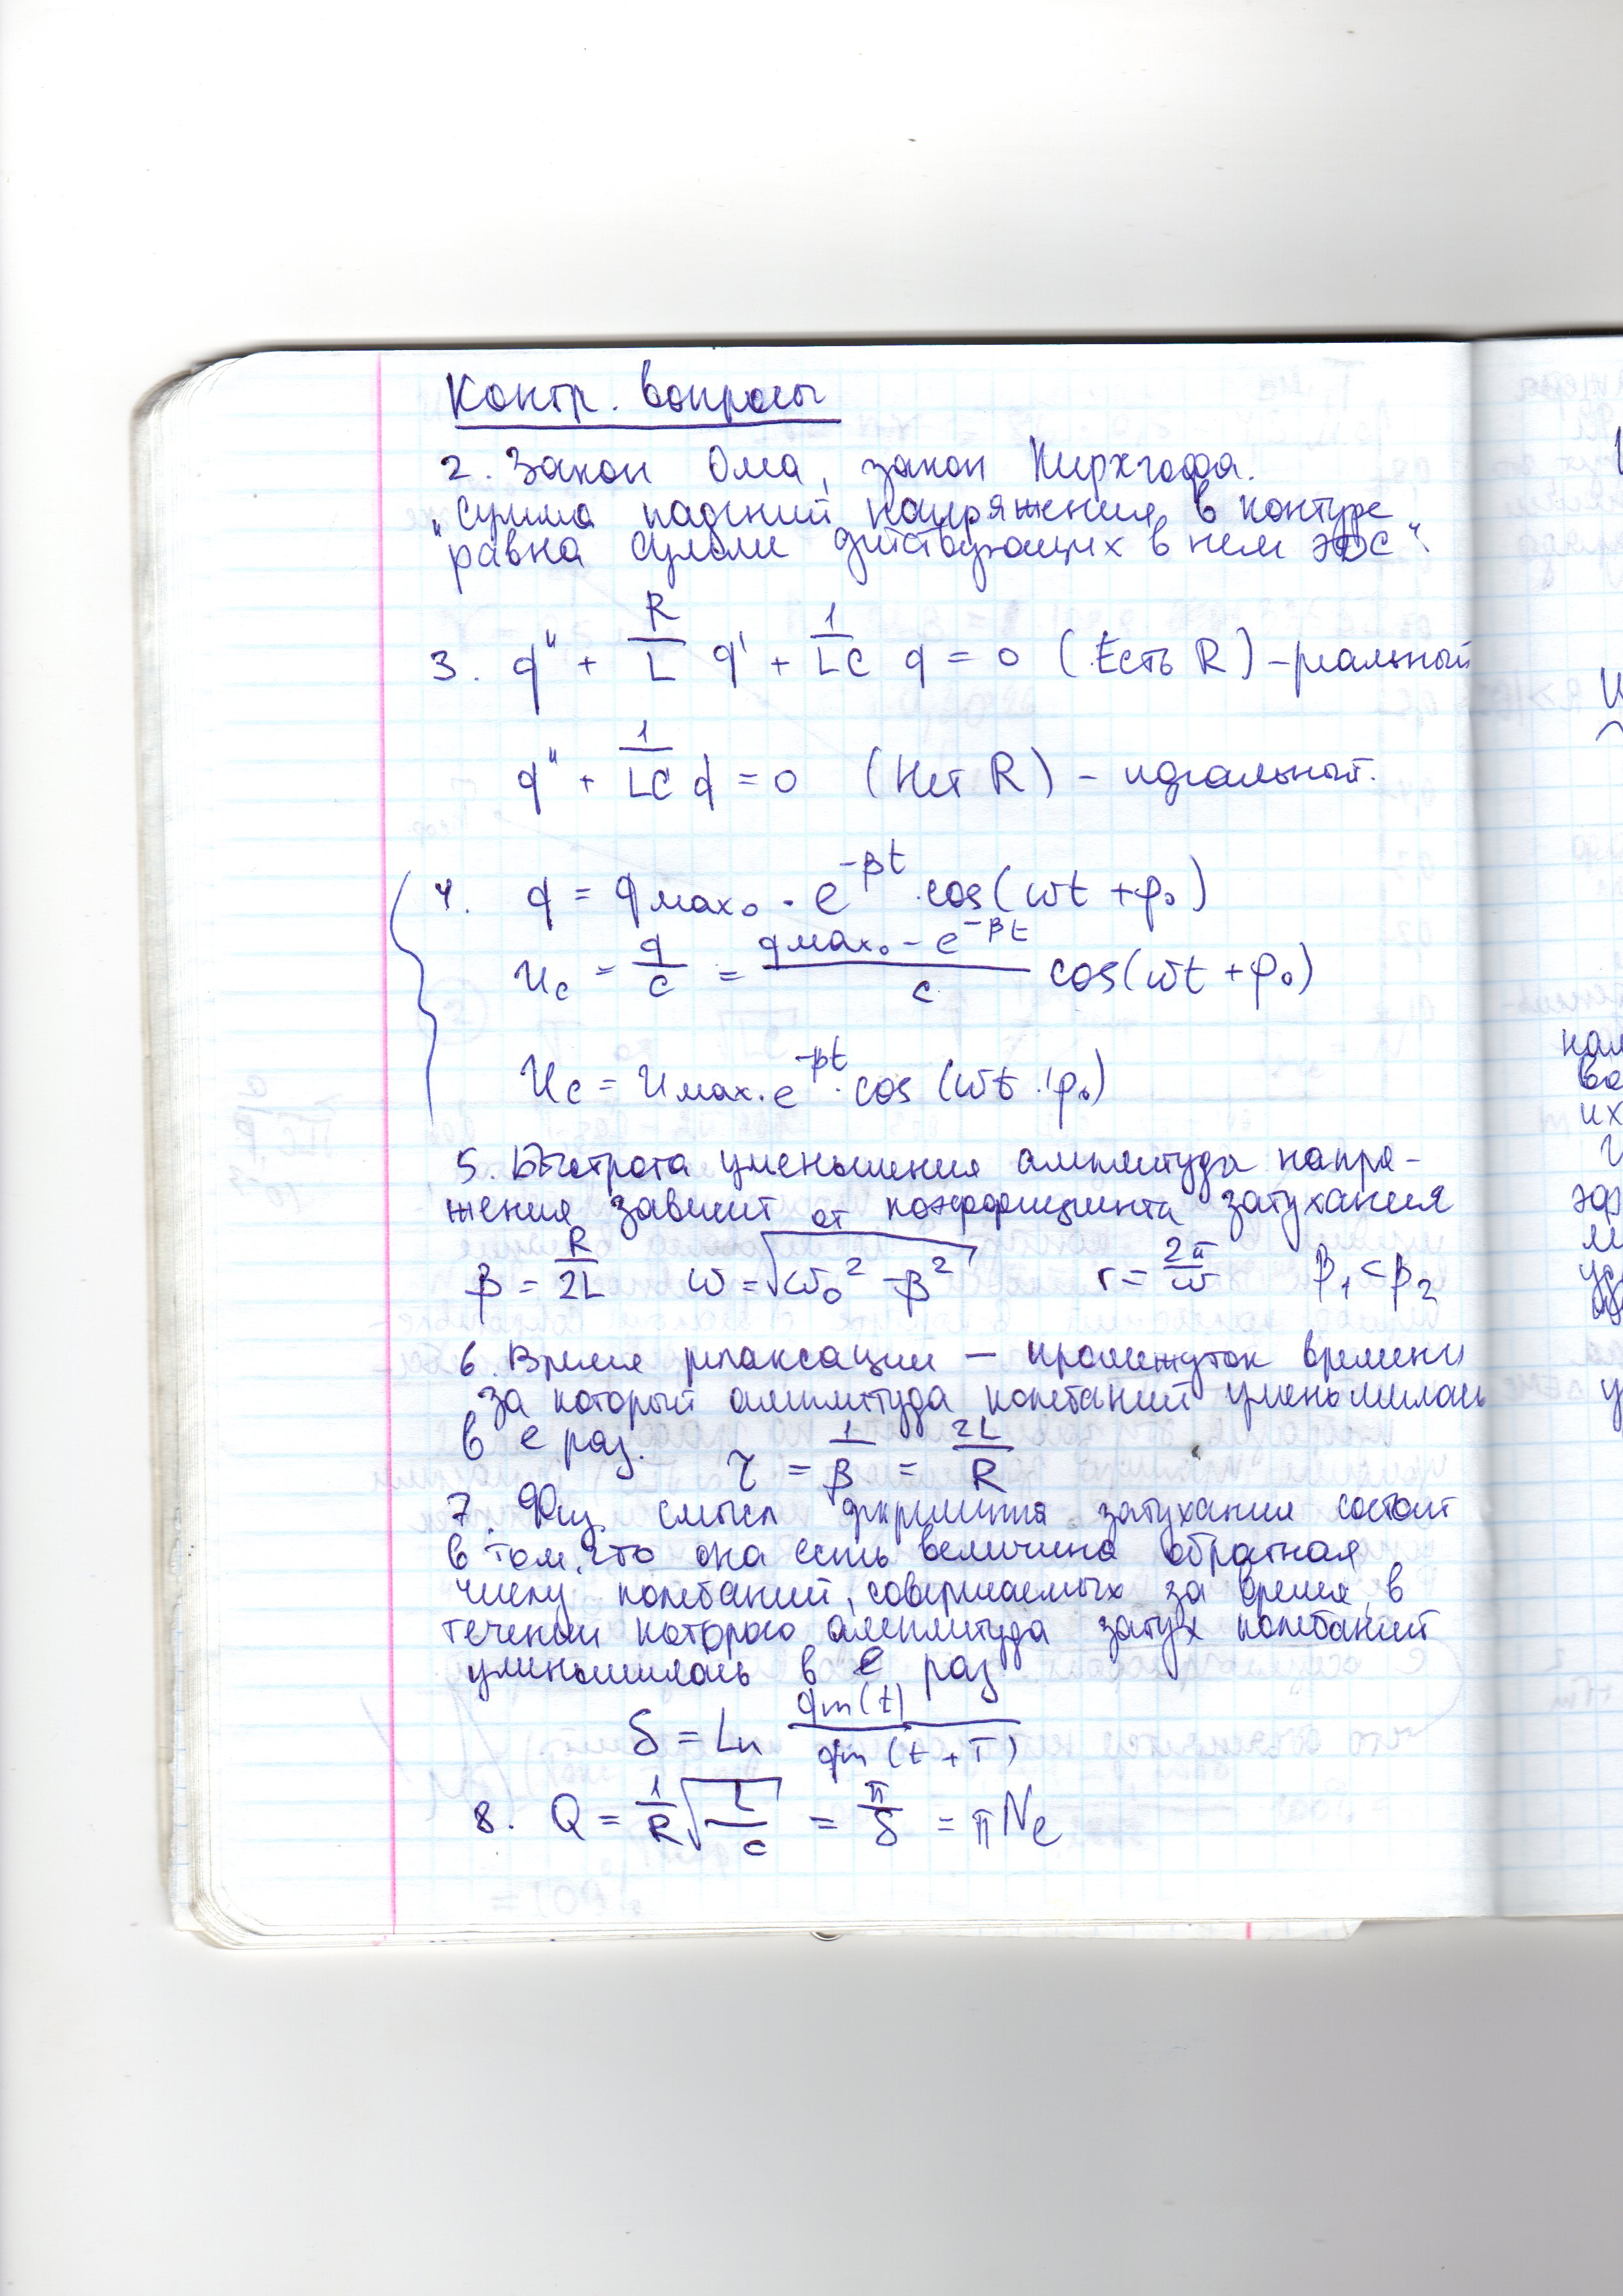 Контр. вопросы
2. Закон Ома, закон Кирхгофа.
"Сумма падений напряжения в контуре
равна сумме действующих в нем ЭДС"
3. q'' + R/L q' + 1/LC q = 0 (Есть R) - реальный
q'' + 1/LC q = 0 (Нет R) - идеальный.
4. q = qмах₀ · e^(-βt) · cos(ωt + φ₀)
Uc = q/c = (qмах₀ - e^(-βt))/c cos(ωt + φ₀)
Uc = Uмах · e^(-βt) · cos(ωt + φ₀)
5. Быстрота уменьшения амплитуда напря-
жения зависит от коэффициента затухания
β = R/2L ω = √(ω₀² - β²) r = 2π/ω β₁ < β₂
6. Время релаксации — промежуток времени
за который амплитуда колебаний уменьшилась
в e раз. τ = 1/β = 2L/R
7. Физ. смысл декремента затухания состоит
в том, что она есть величина обратная
числу колебаний, совершаемых за время, в
течении которого амплитуда затух колебаний
уменьшилась в e раз
δ = Ln qm(t)/qm(t+T)
8. Q = 1/R √(L/c) = π/δ = πNe